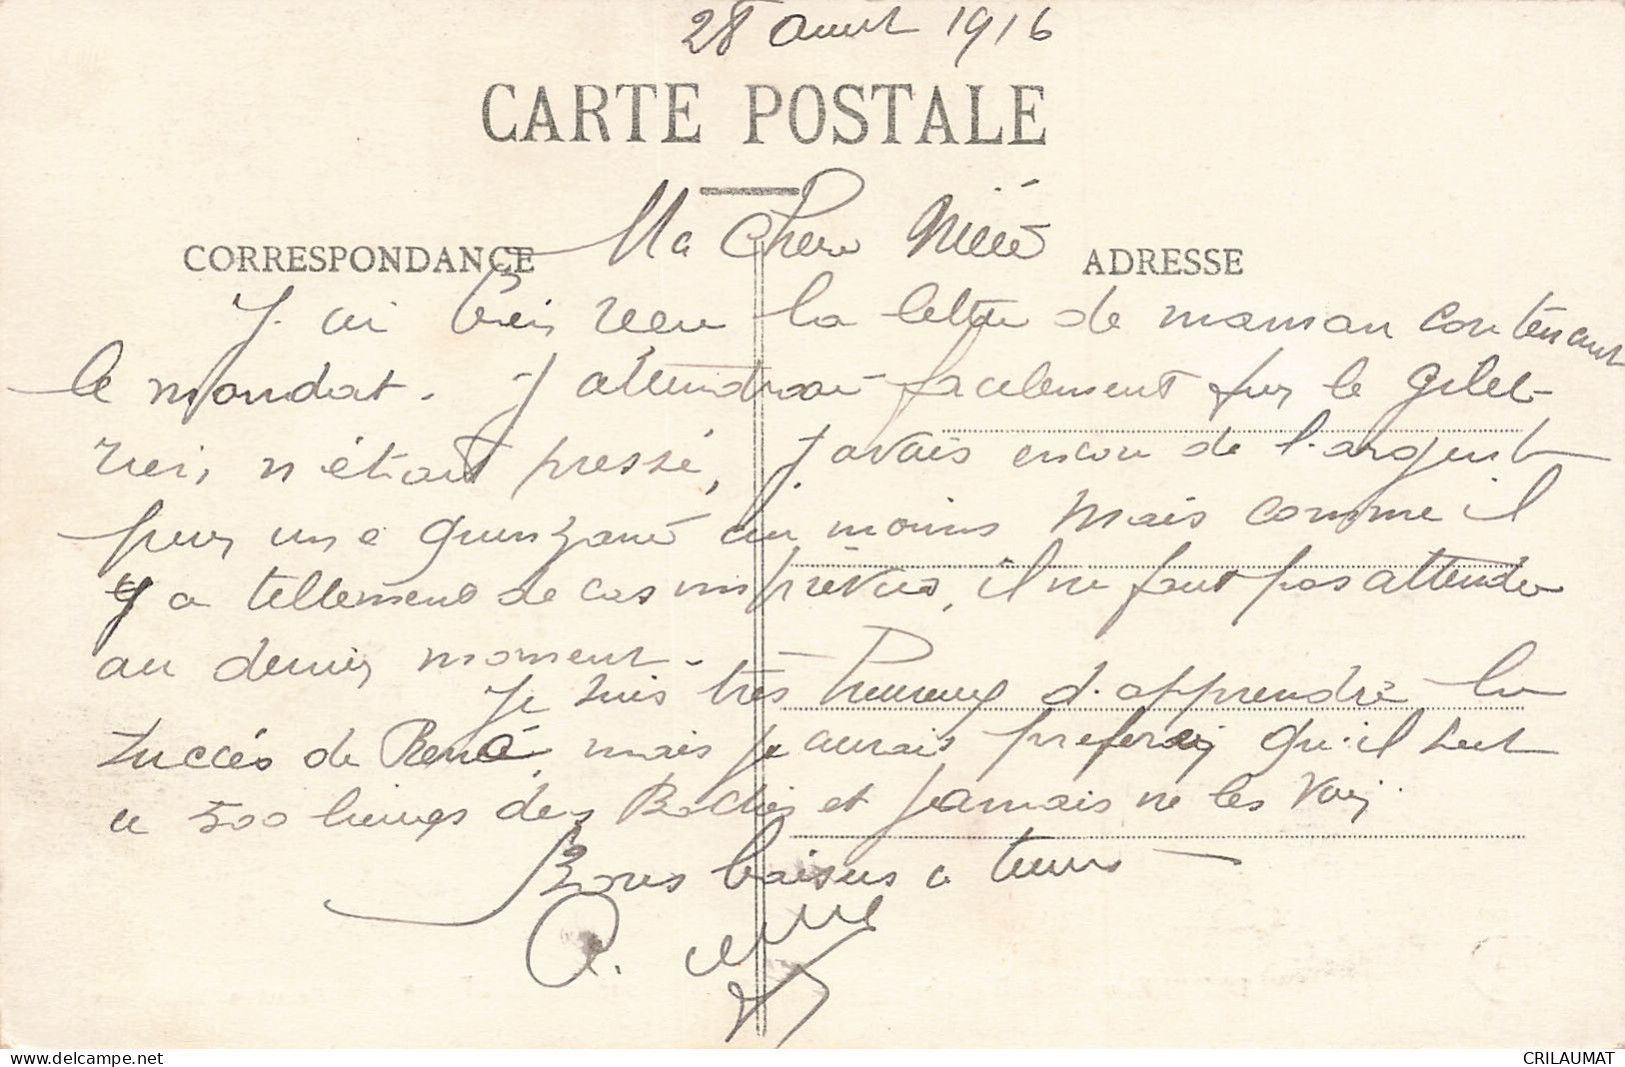 28 Aout 1916
CARTE POSTALE
Ma Chere
CORRESPONDANCE
ADRESSE
J. ai bien reçu la lettre de maman contenant
le mandat. J attendrai facilement car le gilet
rien n'était pressé, J avais encore de l'argent
pour une quinzaine au moins mais comme il
y a tellement de cas imprévus, il ne faut pas attendre
au dernier moment.
Je suis très heureux d'apprendre le
succès de René, mais je aurais preferer qu'il soit
a 500 lieues des Boches et jamais ne les voir.
Bons baisers a tous
www.delcampe.net
CRILAUMAT